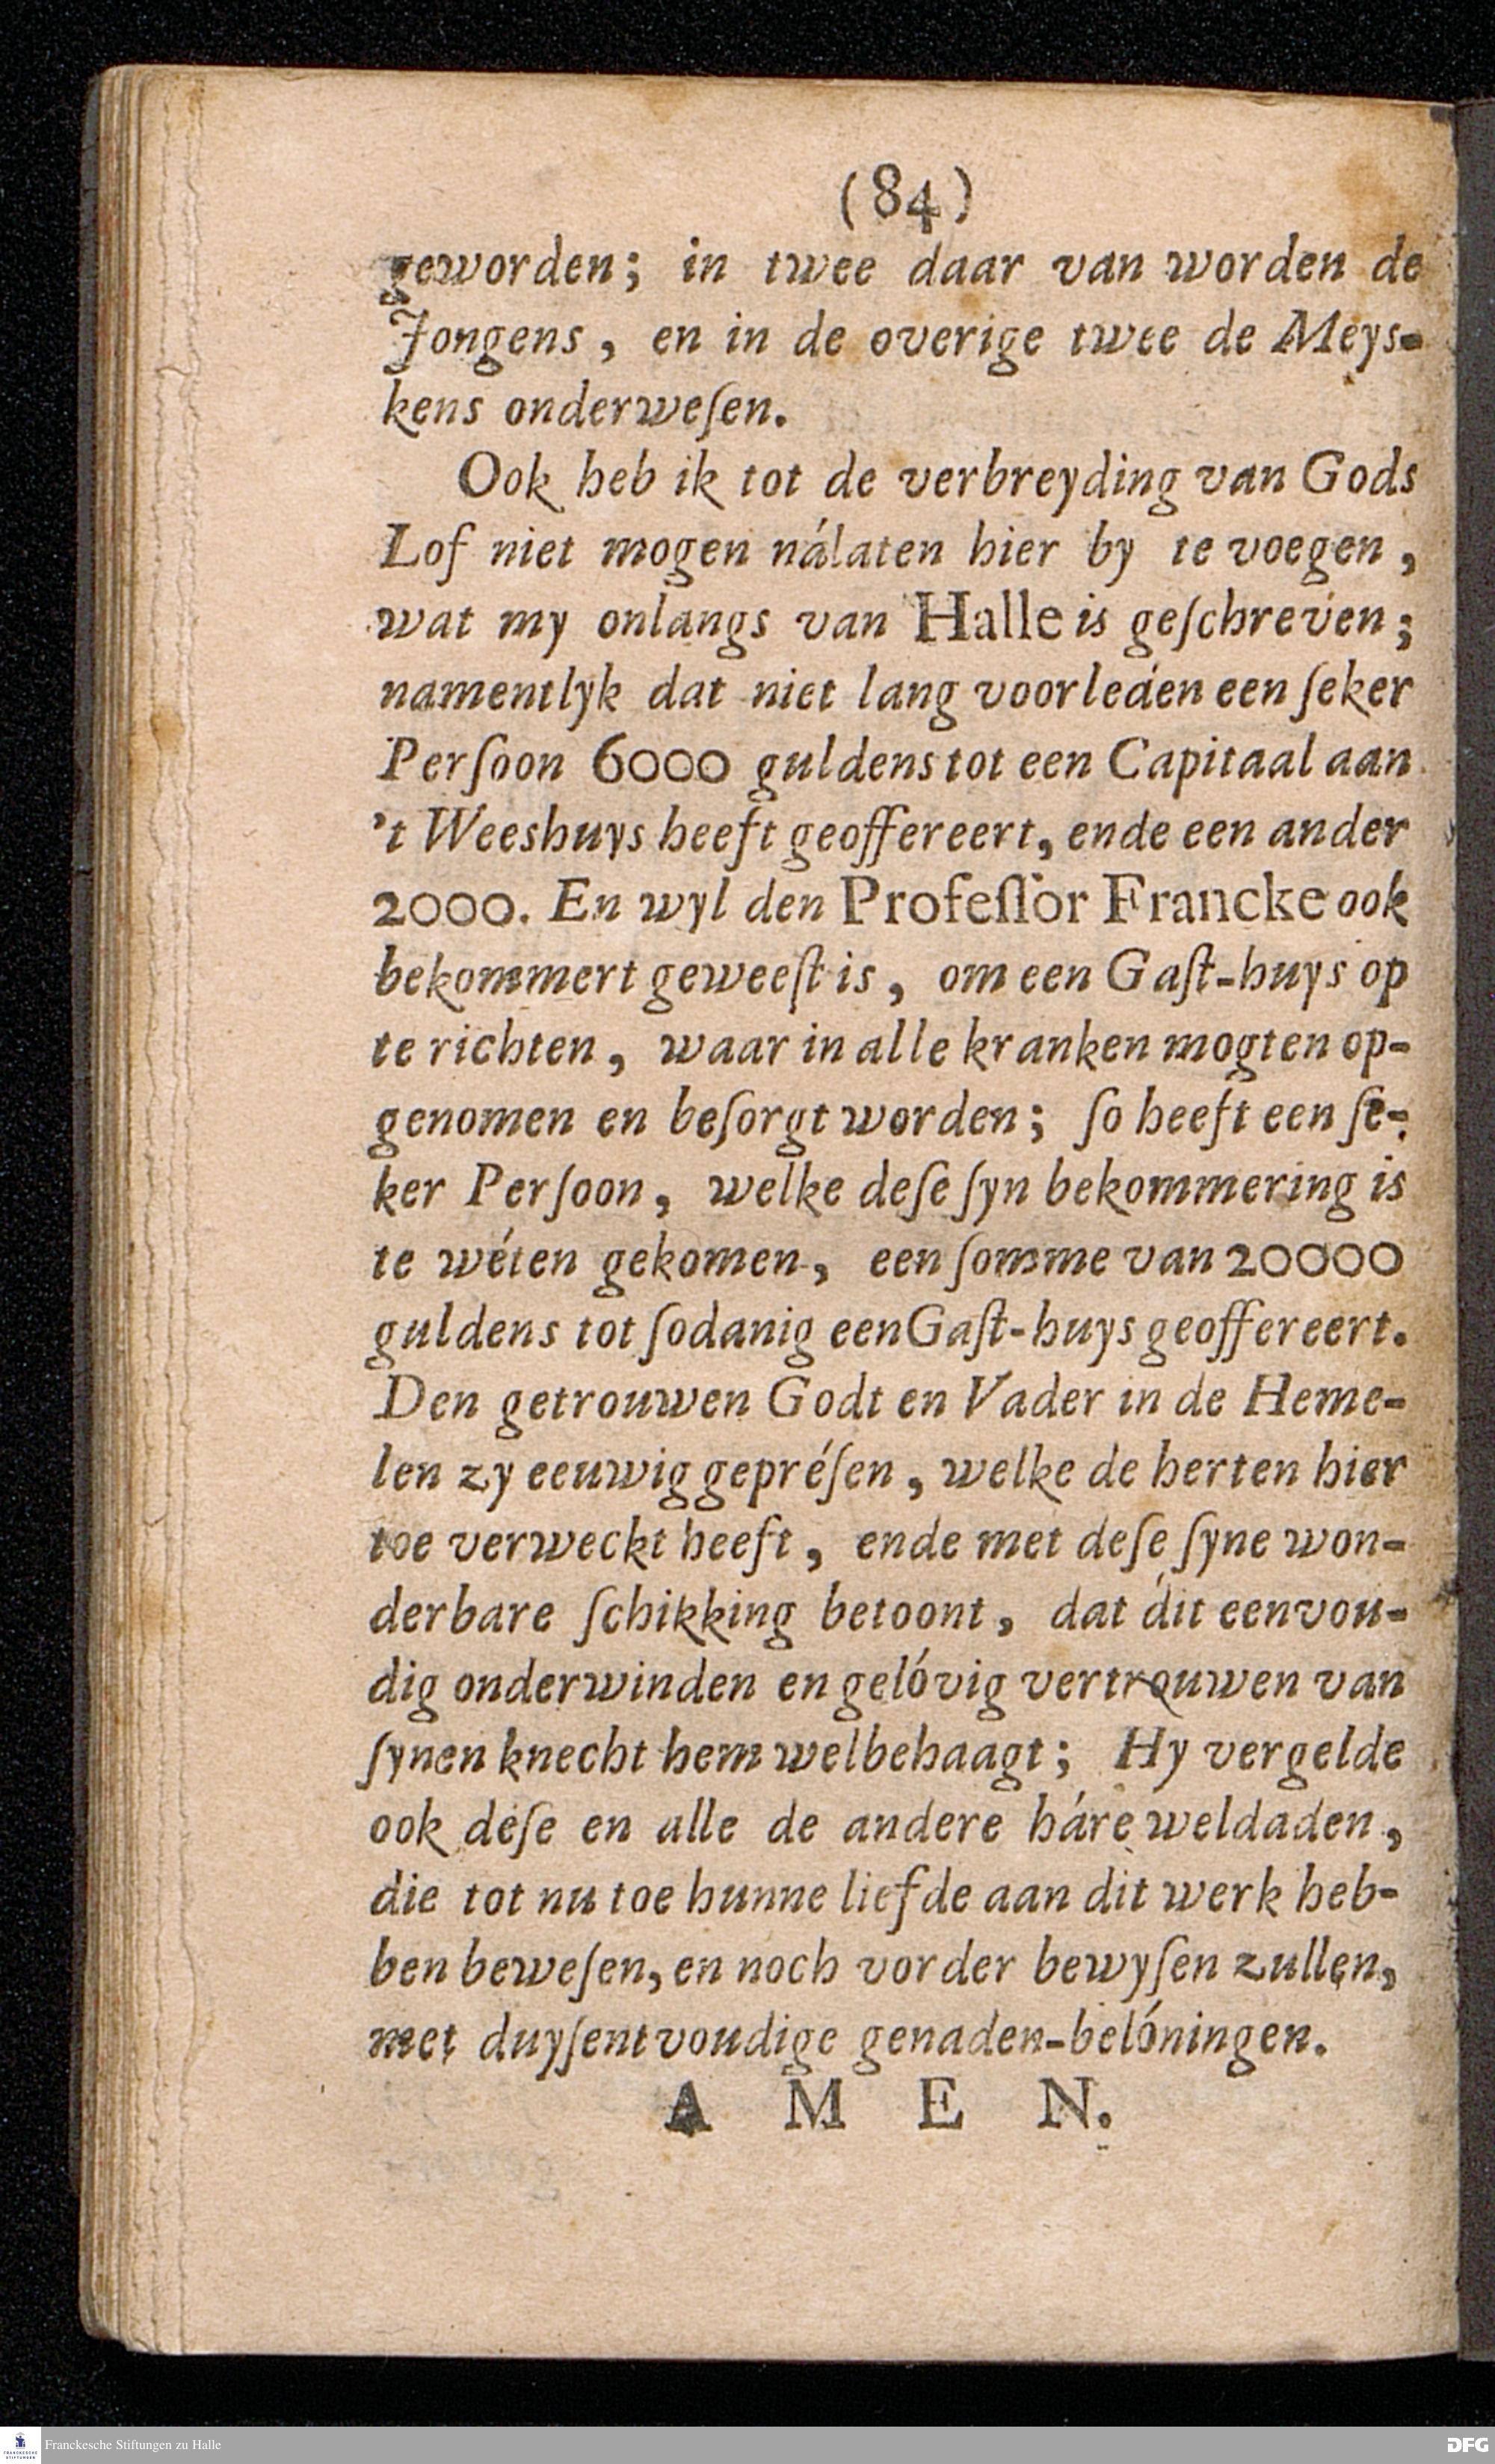 (84)
geworden; in twee daar van worden de
Jongens, en in de overige twee de Meys-
kens onderweſen.
Ook heb ik tot de verbreyding van Gods
Lof niet mogen nálaten hier by te voegen,
wat my onlangs van Halle is geſchreven;
namentlyk dat niet lang voorleden een ſeker
Perſoon 6000 guldens tot een Capitaal aan
't Weeshuys heeft geoffereert, ende een ander
2000. En wyl den Profeſſor Francke ook
bekommert geweeſt is, om een Gaſt-huys op
te richten, waar in alle kranken mogten op-
genomen en beſorgt worden; ſo heeft een ſe-
ker Perſoon, welke deſe ſyn bekommering is
te wéten gekomen, een ſomme van 20000
guldens tot ſodanig een Gaſt-huys geoffereert.
Den getrouwen Godt en Vader in de Heme-
len zy eeuwig gepréſen, welke de herten hier
toe verweckt heeft, ende met deſe ſyne won-
derbare ſchikking betoont, dat dit eenvou-
dig onderwinden en gelóvig vertrouwen van
ſynen knecht hem welbehaagt; Hy vergelde
ook deſe en alle de andere háre weldaden,
die tot nu toe hunne liefde aan dit werk heb-
ben beweſen, en noch vorder bewyſen zullen,
met duyſentvoudige genaden-belóningen.
A M E N.
Franckesche Stiftungen zu Halle
FRANCKESCHE STIFTUNGEN
DFG